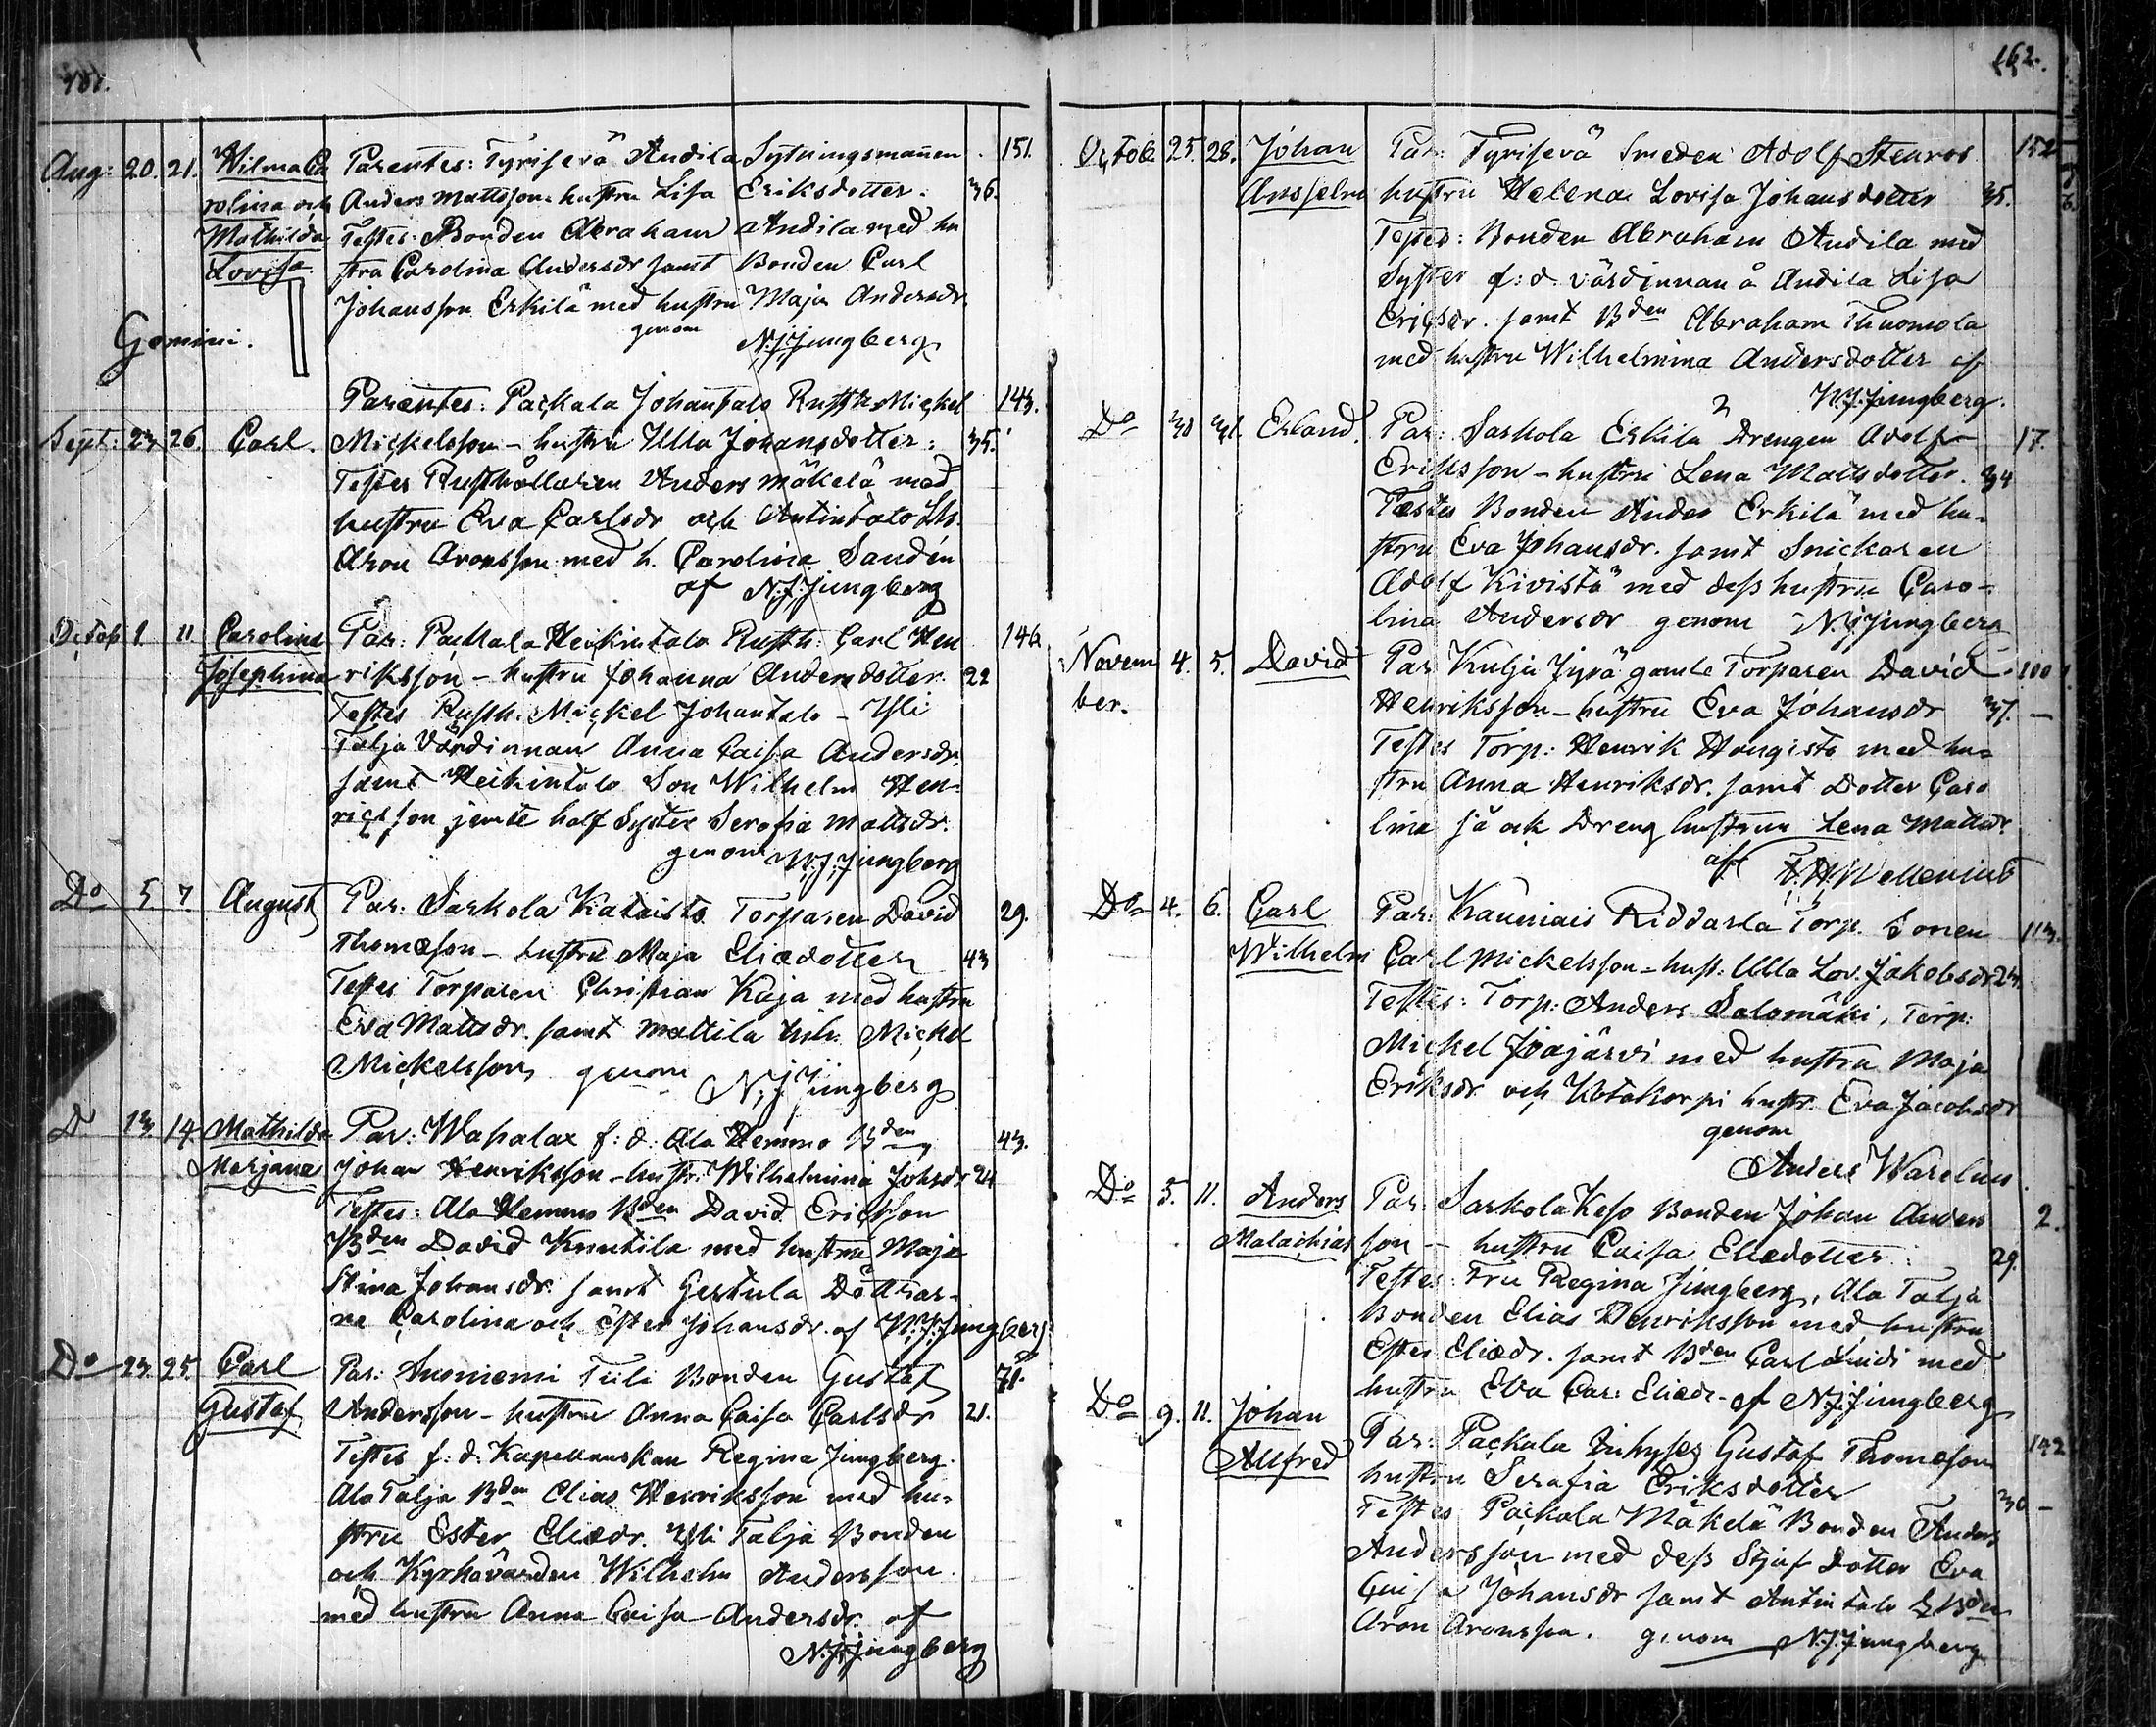 161.
Aug: 20. 21. Wilma Ca Parentes: Tyrisevä Andila Sytningsmannen 151.
rolina och Anders Mattsson - hustru Lisa Eriksdotter: 36.
Mathilda Testes: Bonden Abraham Andila med hu
Lovisa. stru Carolina Andersdr samt Bonden Carl
Johansson Erkilä med hustru Maja Andersdr
Gemini. genom N.J. Jungberg
Parentes: Packala Johantalo Rusth. Mickel 143.
Sept: 23 26. Carl. Mickelsson - hustru Ulla Johansdotter: 35.
Testes Rusthållaren Anders Mäkelä med
hustru Eva Carlsdr och Antintalo
Aron Aronsson med h. Carolina Sandén
af N.J. Jungberg
Octob 1. 11 Carolina Par: Packala Heikintalo Rusth: Carl Hen 146
Josephina riksson - hustru Johanna Andersdotter 22
Testes Rusth. Mickel Johantalo - Yli
Talja Värdinnan Anna Caisa Andersdr.
samt Heikintalo Son Wilhelm Hen-
ricsson jemte half Syster Serafia Mattsdr.
genom N.J. Jungberg
Do 5 7. August Par: Sarkola Kataisto Torparen David 29.
Thomæson - hustru Maja Eliædotter 43
Testes Torparen Christian Kaja med hustru
Eva Mattsdr. samt Mattila Mickel
Mickelsson genom N.J. Jungberg
D 13 14 Mathilda Par: Wapalax f: d: Ala Hemmo Bden 43.
Marjana Johan Henriksson - hustr. Wilhelmina Johsdr 24
Testes: Ala Hemmo Bden David Ericsson
Bden David Knutila med hustru Maja
Stina Johansdr. samt Gertula Döttrar-
ne Carolina och Ester Johansdr. af N.J. Jungberg
Do 23. 25. Carl Par: Suoniemi Tiili Bonden Gustaf 71.
Gustaf Andersson - hustru Anna Caisa Carlsdr 21.
Testes f: d: Kapellanskan Regina Jungberg.
Ala Talja Bden Elias Henriksson med hu-
stru Ester Eliædr. Yli Talja Bonden
och Kyrkovärden Wilhelm Andersson
med hustru Anna Caisa Andersdr. af
N.J. Jungberg
162.
Octob 25. 28. Johan Par: Tyrisevä Smeden Adolf Stenros 152
Ansselm hustru Helena Lovisa Johansdotter 35.
Testes: Bonden Abraham Andila med
Syster f: d. värdinnan å Andila Lisa
Ericsdr. samt Bden Abraham Thuomola
med hustru Wilhelmina Andersdotter af
N.J. Jungberg.
Do 30 31. Erland. Par: Sarkola Erkila Drengen Adolf 17.
Eriksson - hustru Lena Mattsdotter. 34
Testes Bonden Anders Erkilä med hu-
stru Eva Johansdr. samt Snickaren
Adolf Kivistö med dess hustru Caro-
lina Andersdr genom N.J. Jungberg
Novem 4. 5. David Par Kulju Jyrä gamle Torparen David 100
ber. Henriksson - hustru Eva Johansdr 37. -
Testes Torp: Henrik Hongisto med hu-
stru Anna Henriksdr. samt Dotter Caro
lina så ock Dreng hustrun Lena Mattsdr
af F.H. Wellenius
Do 4. 6. Carl Par: Kauniais Riddarla Torp. Sonen 113.
Wilhelm Carl Mickelsson - hust: Ulla Lov. Jakobsdr 24.
Testes: Torp: Anders Salomäki, Torp:
Mickel Joajärvi med hustru Maja
Eriksdr och Kotakorpi hustr. Eva Jacobsdr
genom
Anders Warelius.
Do 5. 11. Anders Par: Sarkola Keso Bonden Johan Anders 2.
Malachias son - hustru Caisa Eliædotter: 29.
Testes: Fru Regina Jungberg, Ala Talja
Bonden Elias Henriksson med hustru
Ester Eliædr. samt Bden Carl med
hustru Eva Car: Eliædr - af N.J. Jungberg
Do 9. 11. Johan Par: Packala Inhyses Gustaf Thomæson 142
Alfred hustru Serafia Eriksdotter 30 -
Testes Packala Mäkelä Bonden Anders
Andersson med dess Stjuf Dotter Eva
Caisa Johansdr samt Antintalo Bden
Aron Aronsson. genom N.J. Jungberg